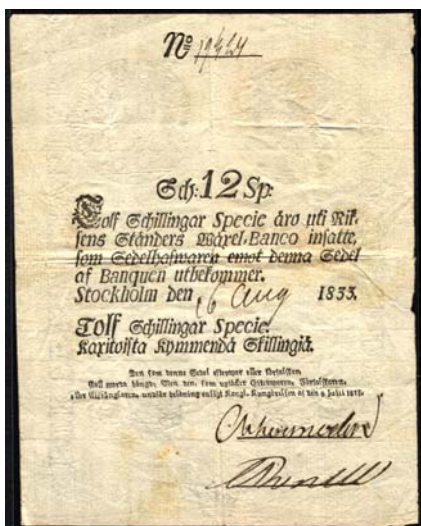 No 19424
Sch: 12 Sp:
Tolf Schillingar Specie äro uti Rik-
sens Ständers Wäxel-Banco insatte,
som Sedelhafwaren emot denna Sedel
af Banquen utbekommer.
Stockholm den 16 Aug 1833.
Tolf Schillingar Specie.
Kaxitoista Kymmendä Skillingiä.
Den som denne Sedel efterapar eller förfalskar,
skall warda hängd; Men den, som uptäcker
eller
undfår belöning enligt Kongl. Kungörelsen af den